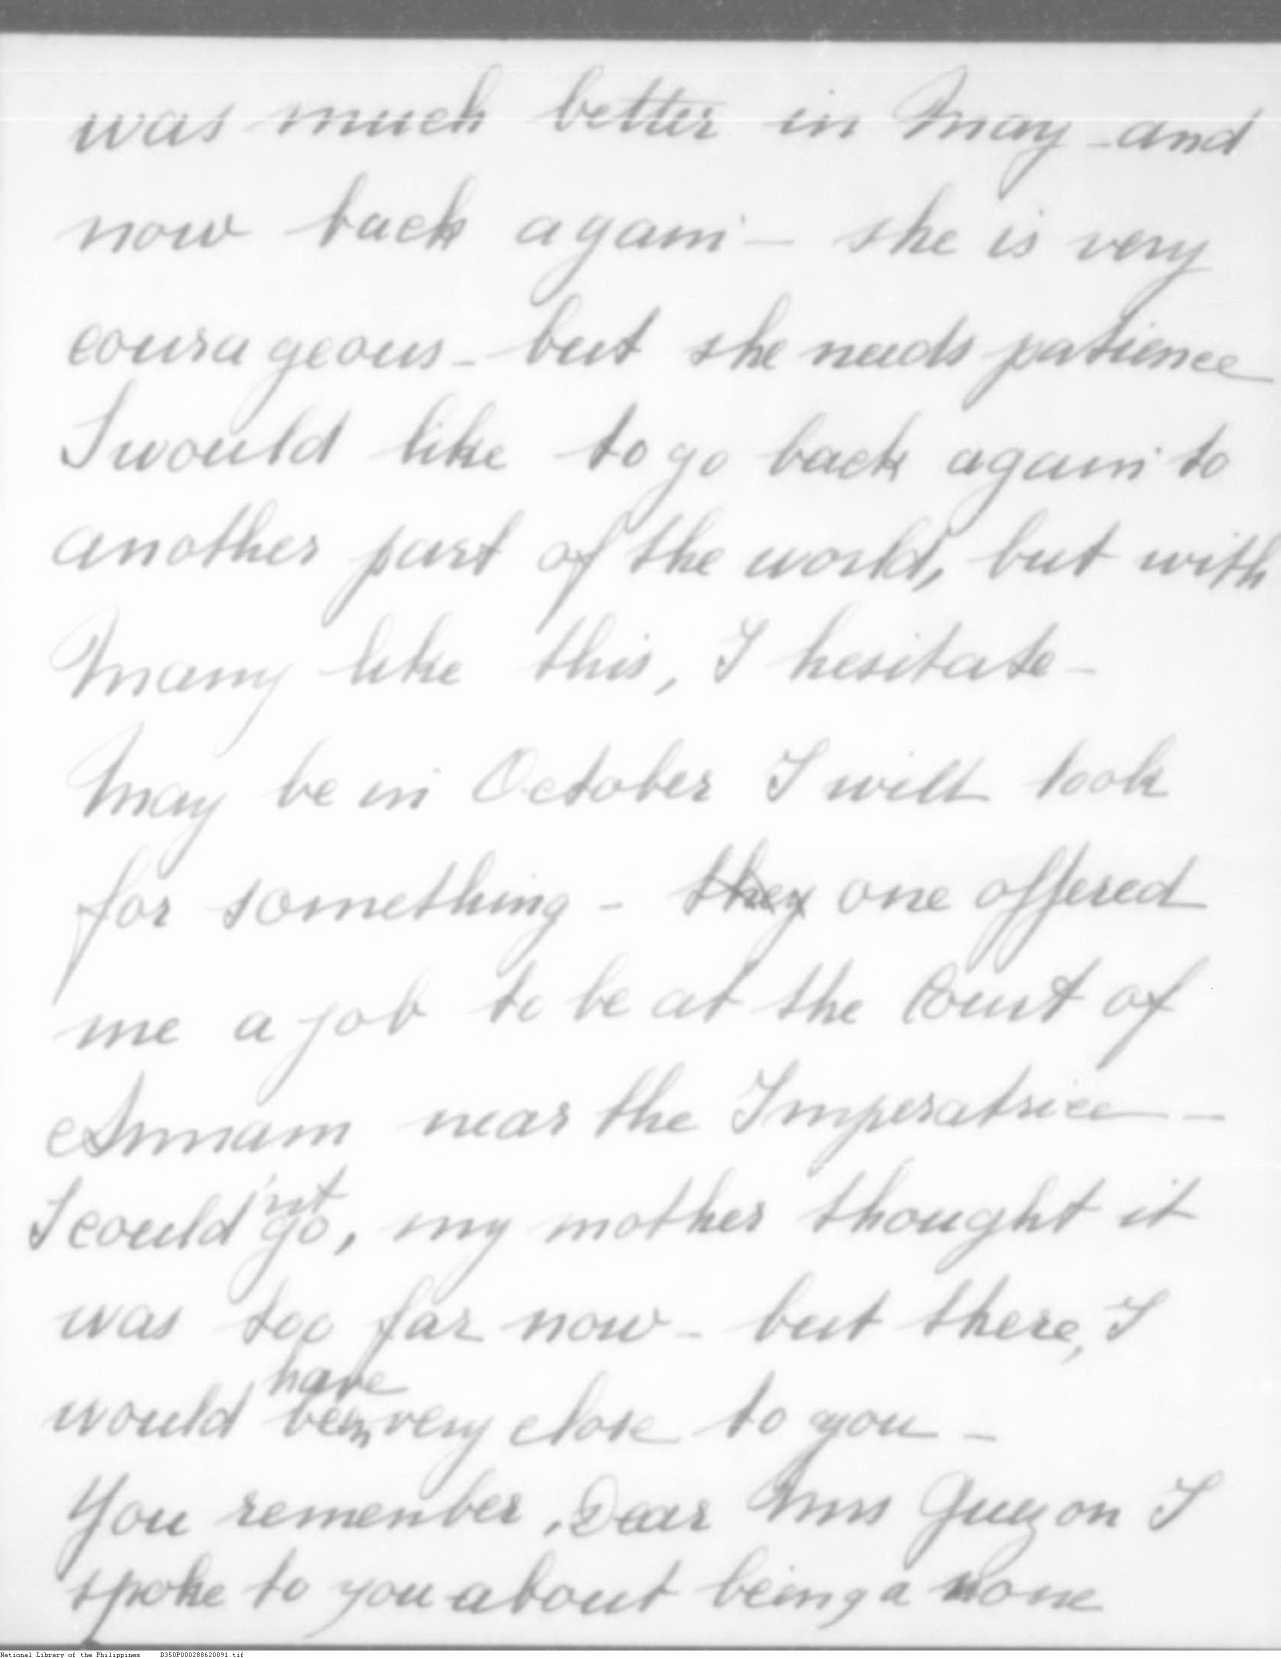 was much better in May - and
now back again - she is very
courageous - but she needs patience
I would like to go back again to
another part of the world, but with
Mamy like this, I hesitate -
May be in October I will look
for something - they one offered
me a job to be at the Court of
Annam near the Imperatrice -
I could'nt go, my mother thought it
was too far now - but there, I
would have been very close to you -
You remenber, Dear Mrs Quezon I
spoke to you about being a none
National Library of the Philippines D350P000288620891.tif